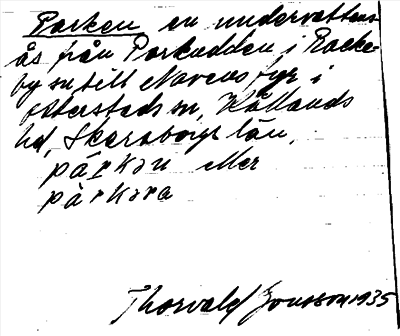 Parken en undervattens
ås från Parkudden i Racke-
by sn till Navens fyr i
Otterstads sn, Kållands
hd, Skaraborgs län.
pårkən eller
pårkəra
Thorvald Jonsson 1935